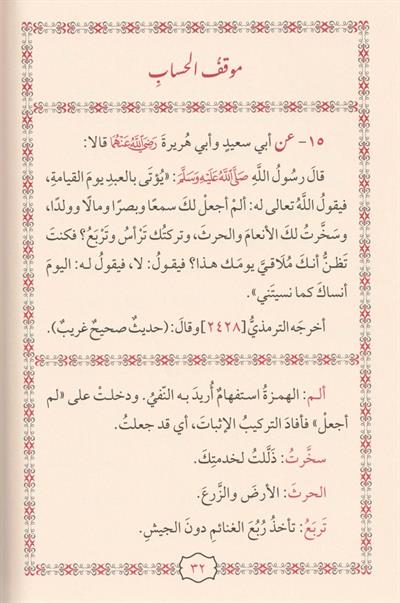 موقفُ الحسابِ
١٥- عن أبي سعيدٍ وأبي هُريرةَ رَضِيَ اللَّهُ عَنْهُمَا قالا:
قالَ رسُولُ اللَّهِ صَلَّى اللَّهُ عَلَيْهِ وَسَلَّمَ: «يُؤتَى بالعبدِ يومَ القيامةِ،
فيقولُ اللَّهُ تعالى له: ألمْ أجعلْ لكَ سمعًا وبصرًا ومالًا وولدًا،
وسَخَّرتُ لكَ الأنعامَ والحرثَ، وتركتُك تَرْأسُ وتَرْبَعُ؟ فكنتَ
تَظنُّ أنكَ مُلَاقيَّ يومَك هذا؟ فيقولُ: لا، فيقولُ له: اليومَ
أنساكَ كما نسيتَني».
أخرجَه الترمذيُّ [٢٤٢٨] وقالَ: (حديثٌ صحيحٌ غريبٌ).
ألم: الهمزةُ استفهامٌ أُريدَ به النَّفيُ. ودخلتْ على «لم
أجعلْ» فأفادَ التركيبُ الإثباتَ، أي قد جعلتُ.
سخَّرتُ: ذَلَّلتُ لخدمتِكَ.
الحرثَ: الأرضَ والزَّرعَ.
تَربَعُ: تأخذُ رُبُعَ الغنائمِ دونَ الجيشِ.
٣٢